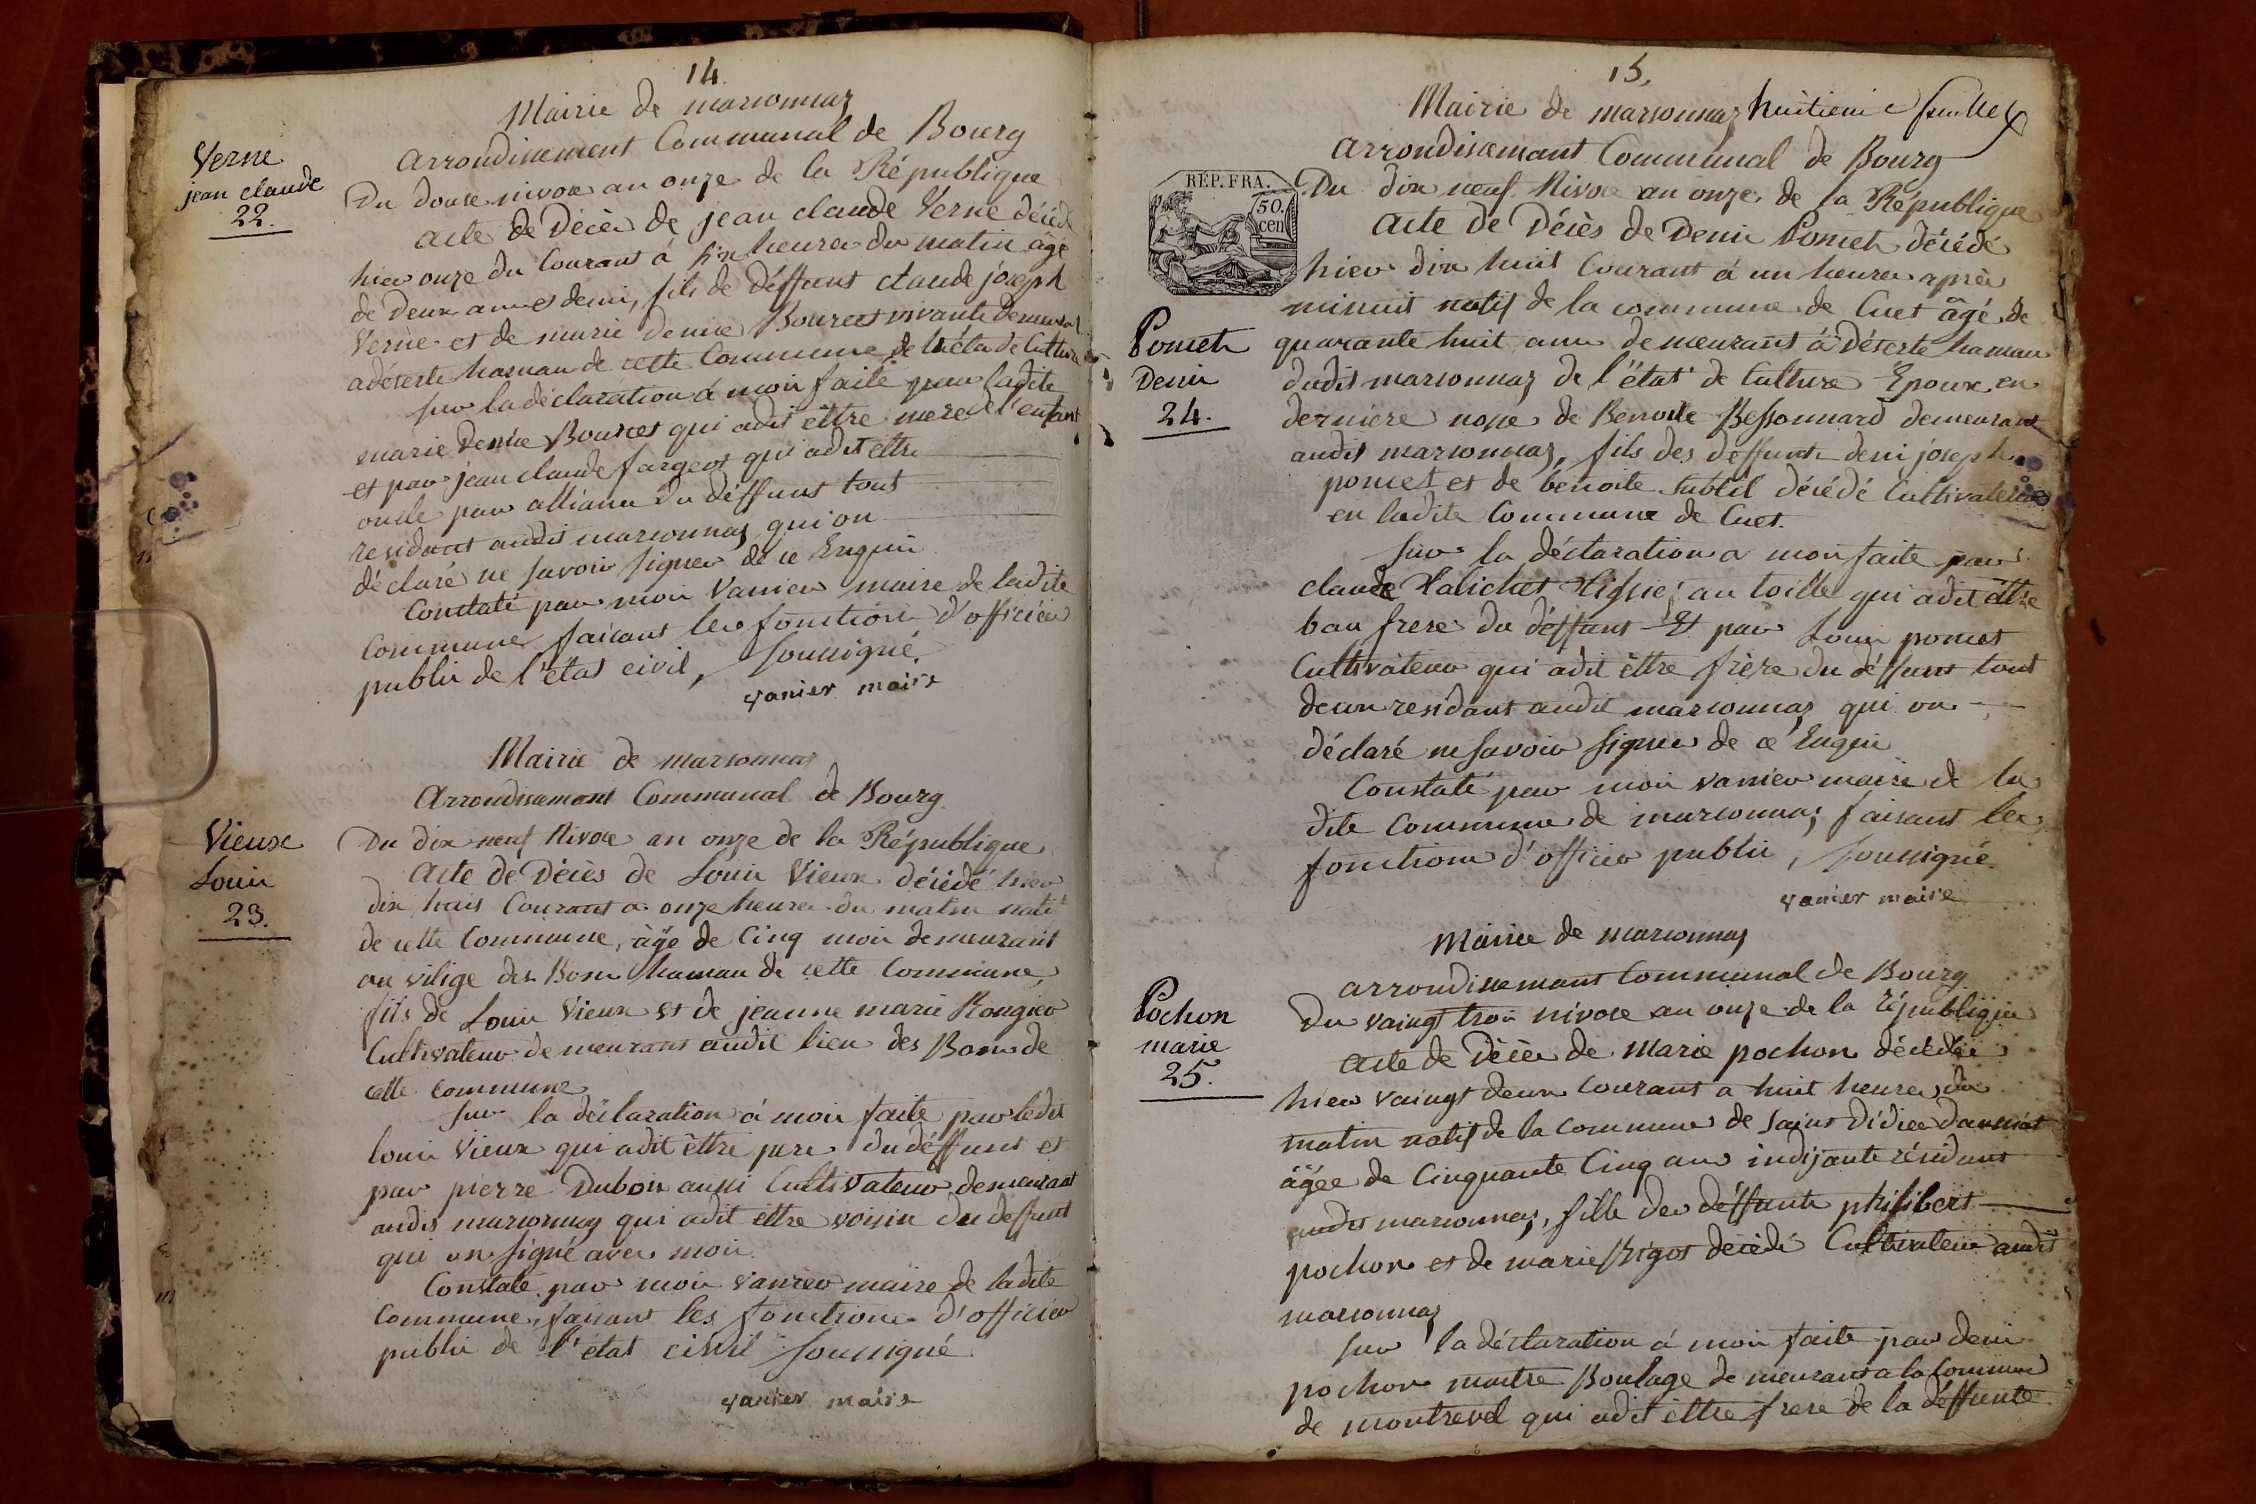 14.
Mairie de marsonnaz
arrondissement Communal de Bourg
Verne
jean claude
22.
Du douze nivose an onze de la République
acte de Décès de jean claude Verne décédé
hier onze du Courant à six heures du matin âgé
de Deux ans et demi, fils de déffunt claude joseph
Verne et de marie denise Bourcet vivante demeurant
a déserte hamau de cette Commune de létat de Culture
sur la déclaration a moi faite par ladite
marie Denise Bourcet qui adit êttre mere de l'enfant
et par jean claude fargeot qui adit ettre
oncle par alliance du déffunt tout
residant audit marsonnaz qui on
déclaré ne savoir signer de ce Enquis
Constaté par moi Vanier maire de ladite
Commune faisant les fonctions d'officier
public de l'etat civil, soussigné.
vanier maire
Mairie de marsonnaz
Arrondissemant Communal de Bourg
Vieux
Louis
23.
Du dix neuf Nivose an onze de la République
Acte de Décès de Louis Vieux décédé hier
dix huit Courant a onze heures du matin natif
de cette Commune, âgé de Cinq mois demeurant
au vilige des Bons hamau de cette Commune,
fils de Louis Vieux et de jeanne marie Rongier
Cultivateur demeurant audit lieu des Bons de
cette Commune
sur la déclaration à moi faite par ledit
louis Vieux qui adit êttre pere du déffunt et
par pierre Dubois aussi Cultivateur demeurant
audit marsonnaz qui adit êttre voisin du deffunt
qui on signé avec moi
Constaté par moi vanier maire de ladite
Commune, faisant les fonctions d'officier
public de l'état civil soussigné
vanier maire
15.
Mairie de marsonnaz huitieme feuillet
arrondissemant Communal de Bourg
RÉP. FRA.
50.
cen
Du dix neuf Nivose an onze de la République
Acte de Décès de Denis Pomet décédé
hier dix huit Courant à un heures après
minuit natif de la commune de Cuet âgé de
Pomet
Denis
24.
quarante huit ans demeurant à Déserte hamau
dudit marsonnaz de l'état de Culture Epoux en
derniere nose de Benoite Bessonnard demeurant
audit marsonnaz, fils des déffunt deni joseph
pomet et de benoite subtil décédé Cultivateurs
en ladite Commune de Cuet.
sur la déclaration a moi faite par
claude Halichet au toille qui adit êttre
bau frere du déffunt Et par Louis pomet
Cultivateur qui adit êttre frère du déffunt tout
deux residant audit marsonnaz qui on
déclaré ne savoir signer de ce Enquis
Constaté par moi vanier maire de la
dite Commune de marsonnaz faisant les
fonctions d'officier public, soussigné
vanier maire
Mairie de marsonnaz
arrondissemant Communal de Bourg
Pochon
marie
25.
Du vaingt trois nivose an onze de la République
acte de Décès de Marie pochon décédée
hier vaingt deux Courant a huit heures du
matin natif de la commune de saint Didier daussiat
âgée de Cinquante Cinq ans indijante résidant
audit marsonnaz, fille des déffunts philibert
pochon et de marie décédé Cultivateur audit
marsonnaz
sur la déclaration à moi faite par deni
pochon maitre demeurant a la Commune
de montrevel qui adit êttre frere de la déffunte